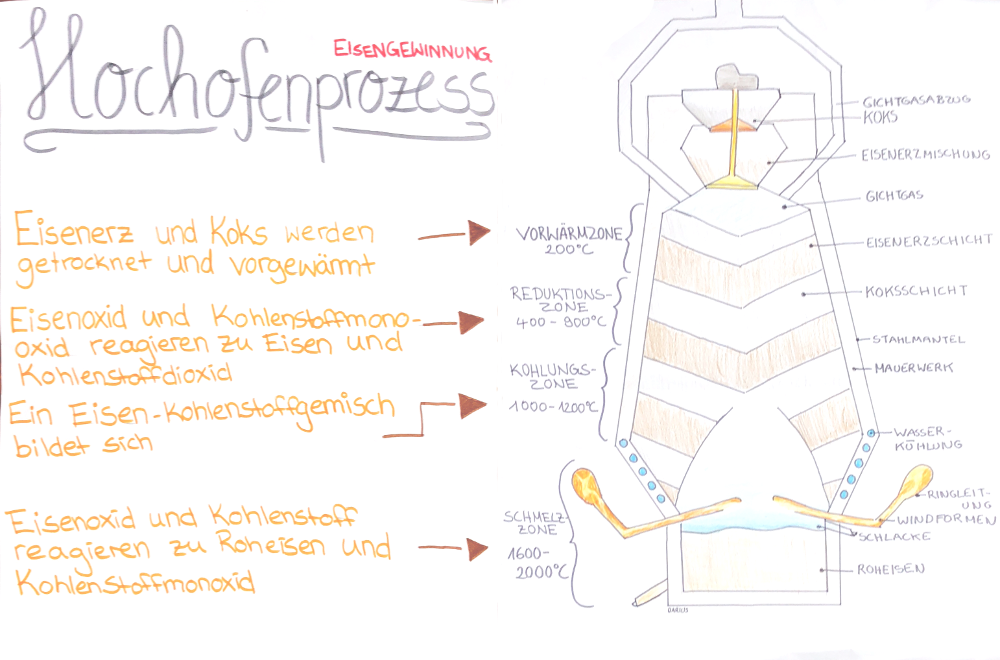 EISENGEWINNUNG
Hochofenprozess
Eisenerz und Koks werden
getrocknet und vorgewärmt
Eisenoxid und Kohlenstoffmono-
oxid reagieren zu Eisen und
Kohlenstoffdioxid
Ein Eisen-Kohlenstoffgemisch
bildet sich
Eisenoxid und Kohlenstoff
reagieren zu Roheisen und
Kohlenstoffmonoxid
VORWÄRMZONE
200°C
REDUKTIONS-
ZONE
400-800°C
KOHLUNGS-
ZONE
1000-1200°C
SCHMELZ-
ZONE
1600-
2000°C
GICHTGASABZUG
KOKS
EISENERZMISCHUNG
GICHTGAS
EISENERZSCHICHT
KOKSSCHICHT
STAHLMANTEL
MAUERWERK
WASSER-
KÜHLUNG
RINGLEIT-
UNG
WINDFORMEN
SCHLACKE
ROHEISEN
DARIUS